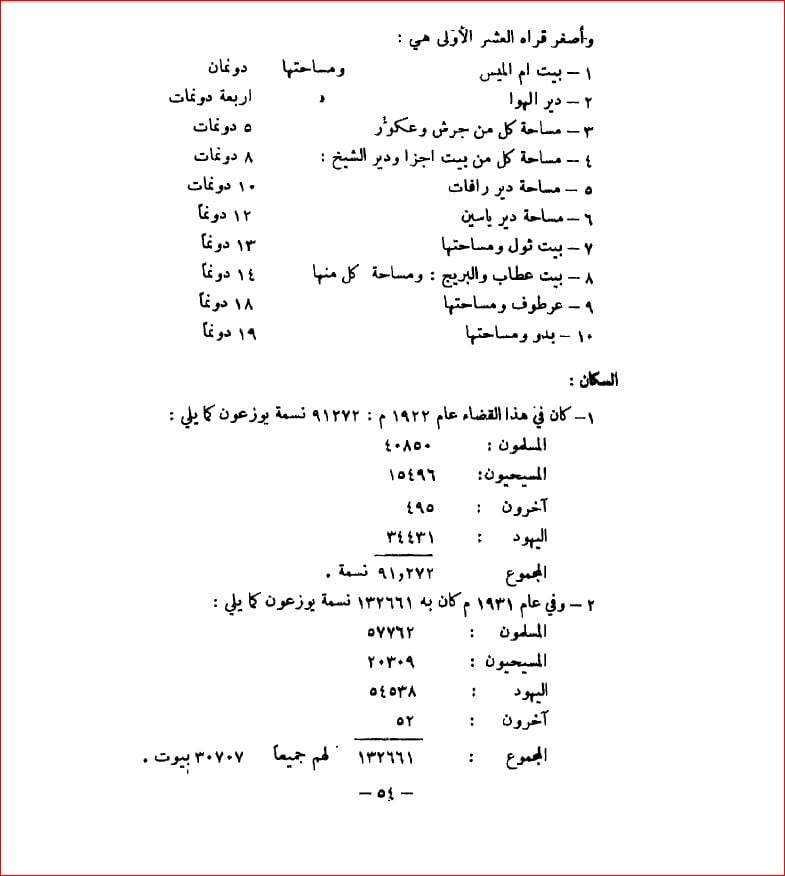 وأصغر قراه العشر الأولى هي :
١ – بيت ام الميس ومساحتها دونمان
٢ – دير الهوا » اربعة دونمات
٣ – مساحة كل من جرش وعكور ٥ دونمات
٤ – مساحة كل من بيت اجزا ودير الشيخ : ٨ دونمات
٥ – مساحة دير رافات ١٠ دونمات
٦ – مساحة دير ياسين ١٢ دونماً
٧ – بيت ثول ومساحتها ١٣ دونماً
٨ – بيت عطاب والبريج : ومساحة كل منها ١٤ دونماً
٩ – عرطوف ومساحتها ١٨ دونماً
١٠ – بدو ومساحتها ١٩ دونماً
السكان :
١ – كان في هذا القضاء عام ١٩٢٢ م : ٩١٢٧٢ نسمة يوزعون كما يلي :
المسلمون : ٤٠٨٥٠
المسيحيون : ١٥٤٩٦
آخرون : ٤٩٥
اليهود : ٣٤٤٣١
المجموع ٩١,٢٧٢ نسمة .
٢ – وفي عام ١٩٣١ م كان به ١٣٢٦٦١ نسمة يوزعون كما يلي :
المسلمون : ٥٧٧٦٢
المسيحيون : ٢٠٣٠٩
اليهود : ٥٤٥٣٨
آخرون : ٥٢
المجموع : ١٣٢٦٦١ لهم جميعاً ٣٠٧٠٧ بيوت .
– ٥٤ –